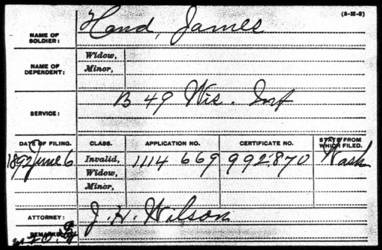 (3-31-5)
NAME OF SOLDIER: Hand, James
NAME OF DEPENDENT: Widow,
Minor,
SERVICE: B 49 Wis. Inf
DATE OF FILING. CLASS. APPLICATION NO. CERTIFICATE NO. STATE FROM WHICH FILED.
1892 June 6 Invalid, 1114 669 992.870 Wash
Widow,
Minor,
ATTORNEY: J. H. Wilson
REMARKS: